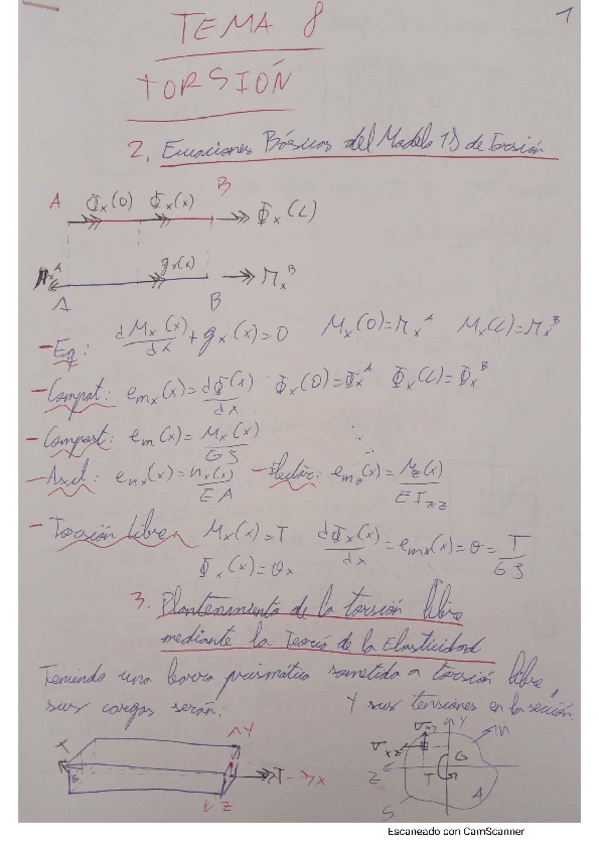 1
TEMA 8
TORSIÓN
2. Ecuaciones Básicas del Modelo 1D de Torsión
A Φx(0) Φx(x) B Φx(L)
Mx^A gx(x) Mx^B
A B
- Eq: dMx(x)/dx + gx(x) = 0 Mx(0) = Mx^A Mx(L) = Mx^B
- Compat: emx(x) = dΦ(x)/dx Φx(0) = Φx^A Φx(L) = Φx^B
- Comport: em(x) = Mx(x)/GJ
- Axil: enx(x) = nx(x)/EA - Flexión: emz(x) = Mz(x)/EIzz
- Torsión libre Mx(x) = T dΦx(x)/dx = emx(x) = θ = T/GJ
Φx(x) = θx
3. Planteamiento de la torsión libre
mediante la Teoría de la Elasticidad
Teniendo una barra prismática sometida a torsión libre,
sus cargas serán: Y sus tensiones en la sección.
T G Y T x Z
σxy Y n σxz G Z T A S
Escaneado con CamScanner